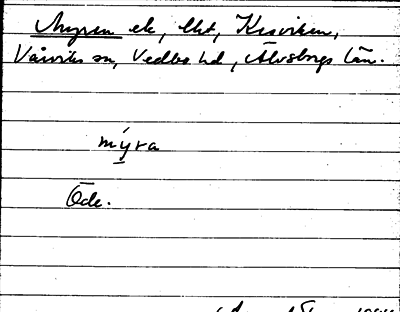 Myren ek, lht, Kesviken,
Vårviks sn, Vedbo hd, Älvsborgs län.
mýra
Öde.